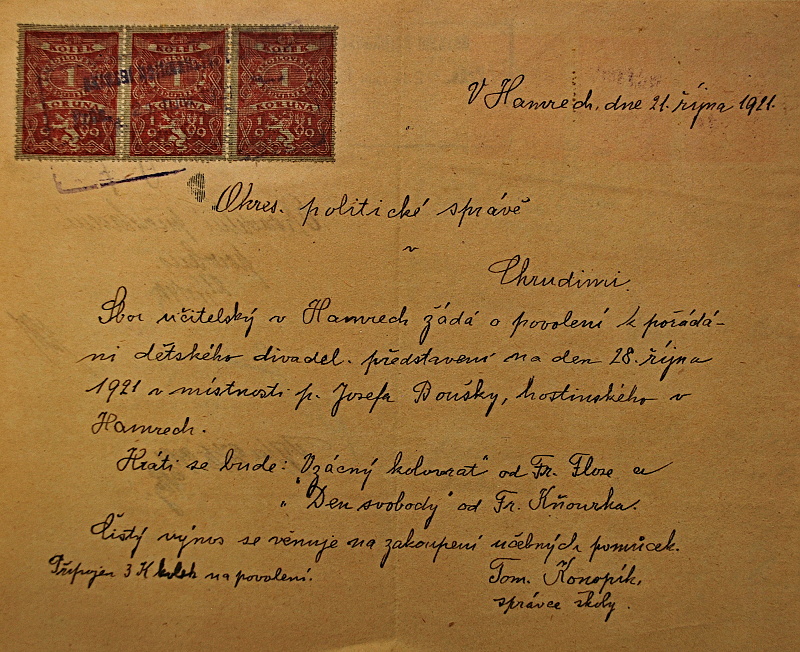 KOLEK KOLEK KOLEK
1 1 1
KORUNA KORUNA KORUNA
1919 1919 1919
V Hamrech, dne 21. října 1921.
Okres. politické správě
v
Chrudimi.
Sbor učitelský v Hamrech žádá o povolení k pořádá-
ní dětského divadel. představení na den 28. října
1921 v místnosti p. Josefa Doušky, hostinského v
Hamrech.
Hráti se bude: "Vzácný kolovrat" od Fr. Flose a
"Den svobody" od Fr. Kňourka.
Čistý výnos se věnuje na zakoupení učebných pomůcek.
Připojen 3 K kolek na povolení.
Tom. Konopík,
správce školy.